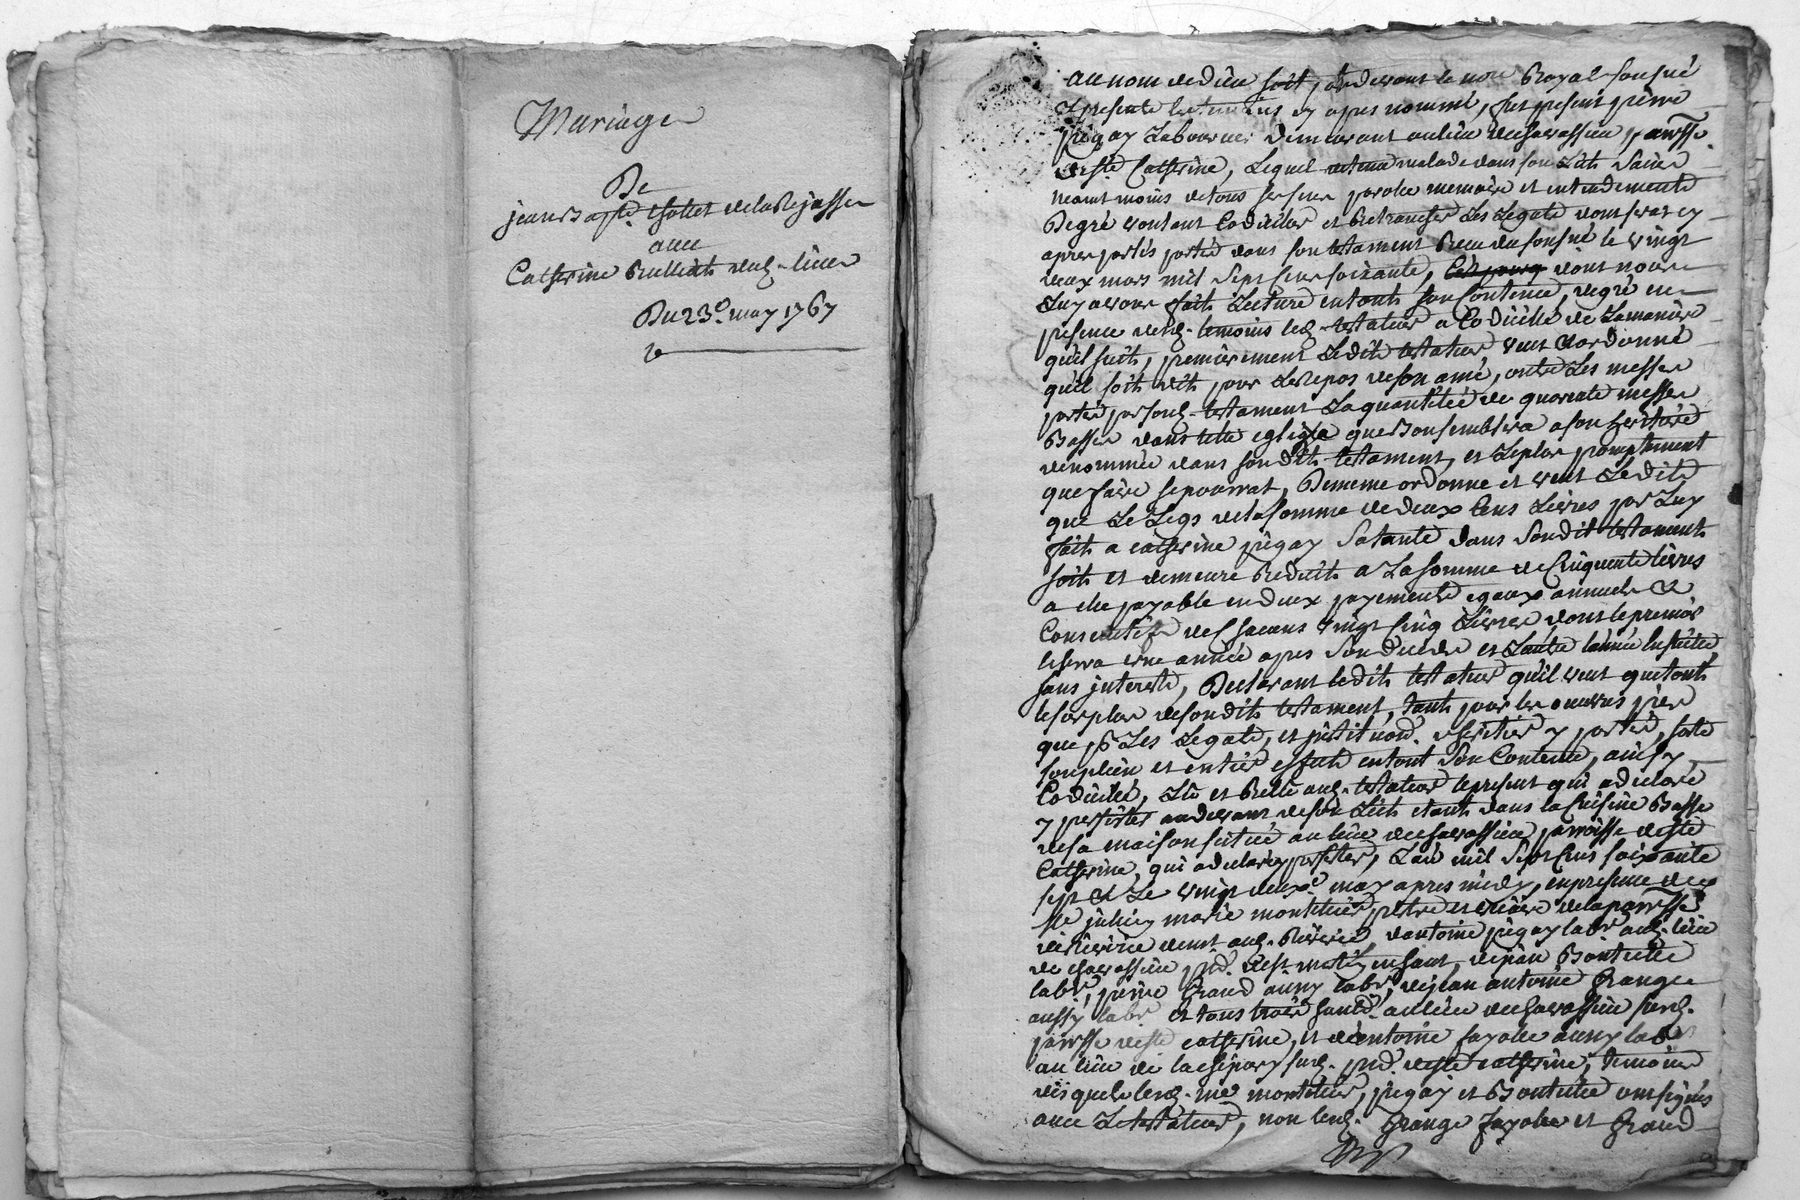 Mariage
De
jean Baptē thollet de la Rejasse
avec
Catherine Brulliat dudt lieu
Du 23e may 1767
au nom de dieu soit, pardevant le nore Royal sousné
& presents les temoins cy apres nommé, fut present pierre
pigay Laboureur demeurant au lieu de parroisse
de ste Catherine, Lequel retenu malade dans son Lit Saine
neant moins de tous ses sens parolle memoire et entendements
Degré voulant Codiciler et Retrancher Les Legats dont seras cy
apres portés dans son testament Receu du sousné le vingt
deux mars mil sept cens soixante, dont nous
Luy avons fait Lecture en tout son Contenue, de gré en
presence desd. temoins led. testateur a Codicillé de La maniere
quil suit, premierement Ledit testateur veut & ordonne
qu'il soit dit pour Le Repos de son ame, outre Les messes
portés par sond. testament La quantitée de quarente messes
Basses dans telle eglize que Bon semblera a son heritiere
denommée dans sondit testament, et Le plus promptement
que faire se pourrat, De meme ordonne et veut Ledit
que Le Legs de la somme de deux Cens Livres par Luy
fait a catherine pigay Sa tante dans Sondit testament
soit et demeure Reduit a La somme de Cinquente livres
a elle payable en deux payements egaux annuels &
Consecutifs de Chacuns vingt Cinq Livres dont le premier
se ferra une année apres Son decéds et L'autre l'année ensuitte
sans interests, Declarant ledit testateur quil veut que tout
le surplus de sondit testament, tant pour les oeuvres pies
que pr Les Legats, et jnstitūon d'heritier y portés, sorte
son plein et entier effect en tout Son Contenu, ainsy
Codicilé, Lû et Relû aud. testateur le present qui a declaré
y persister au devant de son Lit etant dans la Cuisine Basse
de sa maison situé au lieu de parroisse de ste
Catherine, qui a declaré persister, L'an mil Sept Cens soixante
sept & Le vingt deuxe may apres midy, en presence de
Sr julien marie montellier, pretre et vicaire de la parroisse
de Riverie demt aud. Riverie, d'antoine pigay labr aud. lieu
de prd. de St martin en haut, de jean Bonteille
labr, pierre Grand aussy labr, de jean antoine Grange
aussy labr et tous trois au lieu de surd.
parrsse de ste catherine, et d'antoine fayolle aussy labr
au lieu de la surd. prd. de ste catherine, temoins
desquels lesd. mre montellier, pigay et Bonteille ont signés
avec Le testateur, non lesd. Grange fayolle et Grand